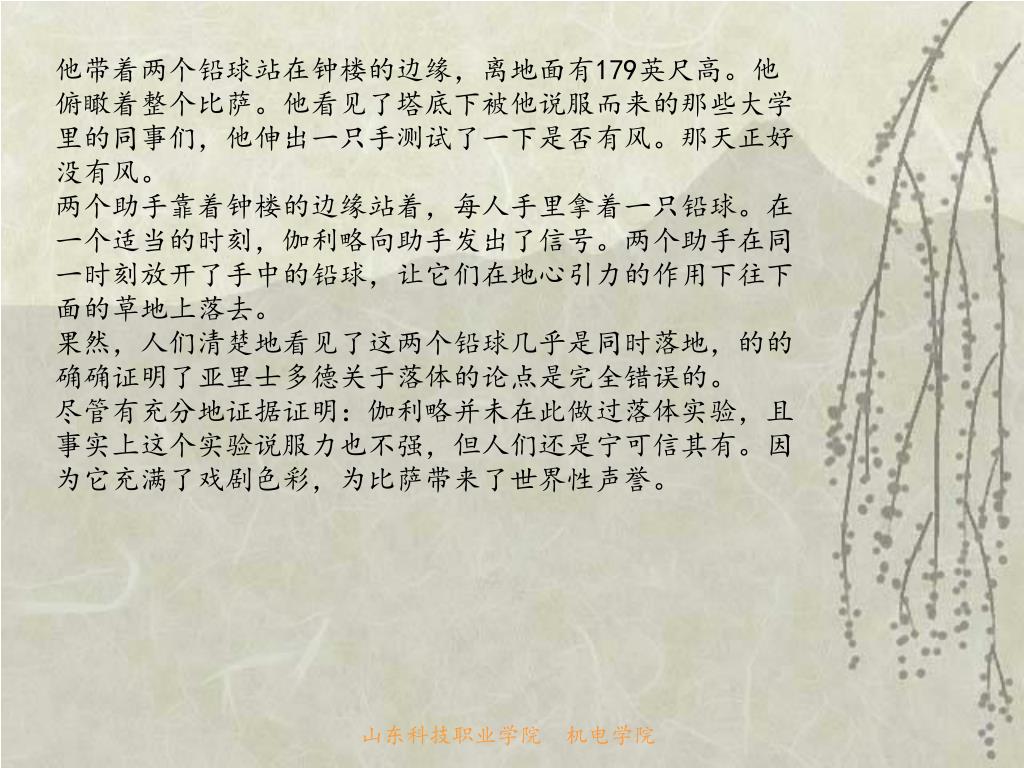 他带着两个铅球站在钟楼的边缘，离地面有179英尺高。他
俯瞰着整个比萨。他看见了塔底下被他说服而来的那些大学
里的同事们，他伸出一只手测试了一下是否有风。那天正好
没有风。
两个助手靠着钟楼的边缘站着，每人手里拿着一只铅球。在
一个适当的时刻，伽利略向助手发出了信号。两个助手在同
一时刻放开了手中的铅球，让它们在地心引力的作用下往下
面的草地上落去。
果然，人们清楚地看见了这两个铅球几乎是同时落地，的的
确确证明了亚里士多德关于落体的论点是完全错误的。
尽管有充分地证据证明：伽利略并未在此做过落体实验，且
事实上这个实验说服力也不强，但人们还是宁可信其有。因
为它充满了戏剧色彩，为比萨带来了世界性声誉。
山东科技职业学院 机电学院